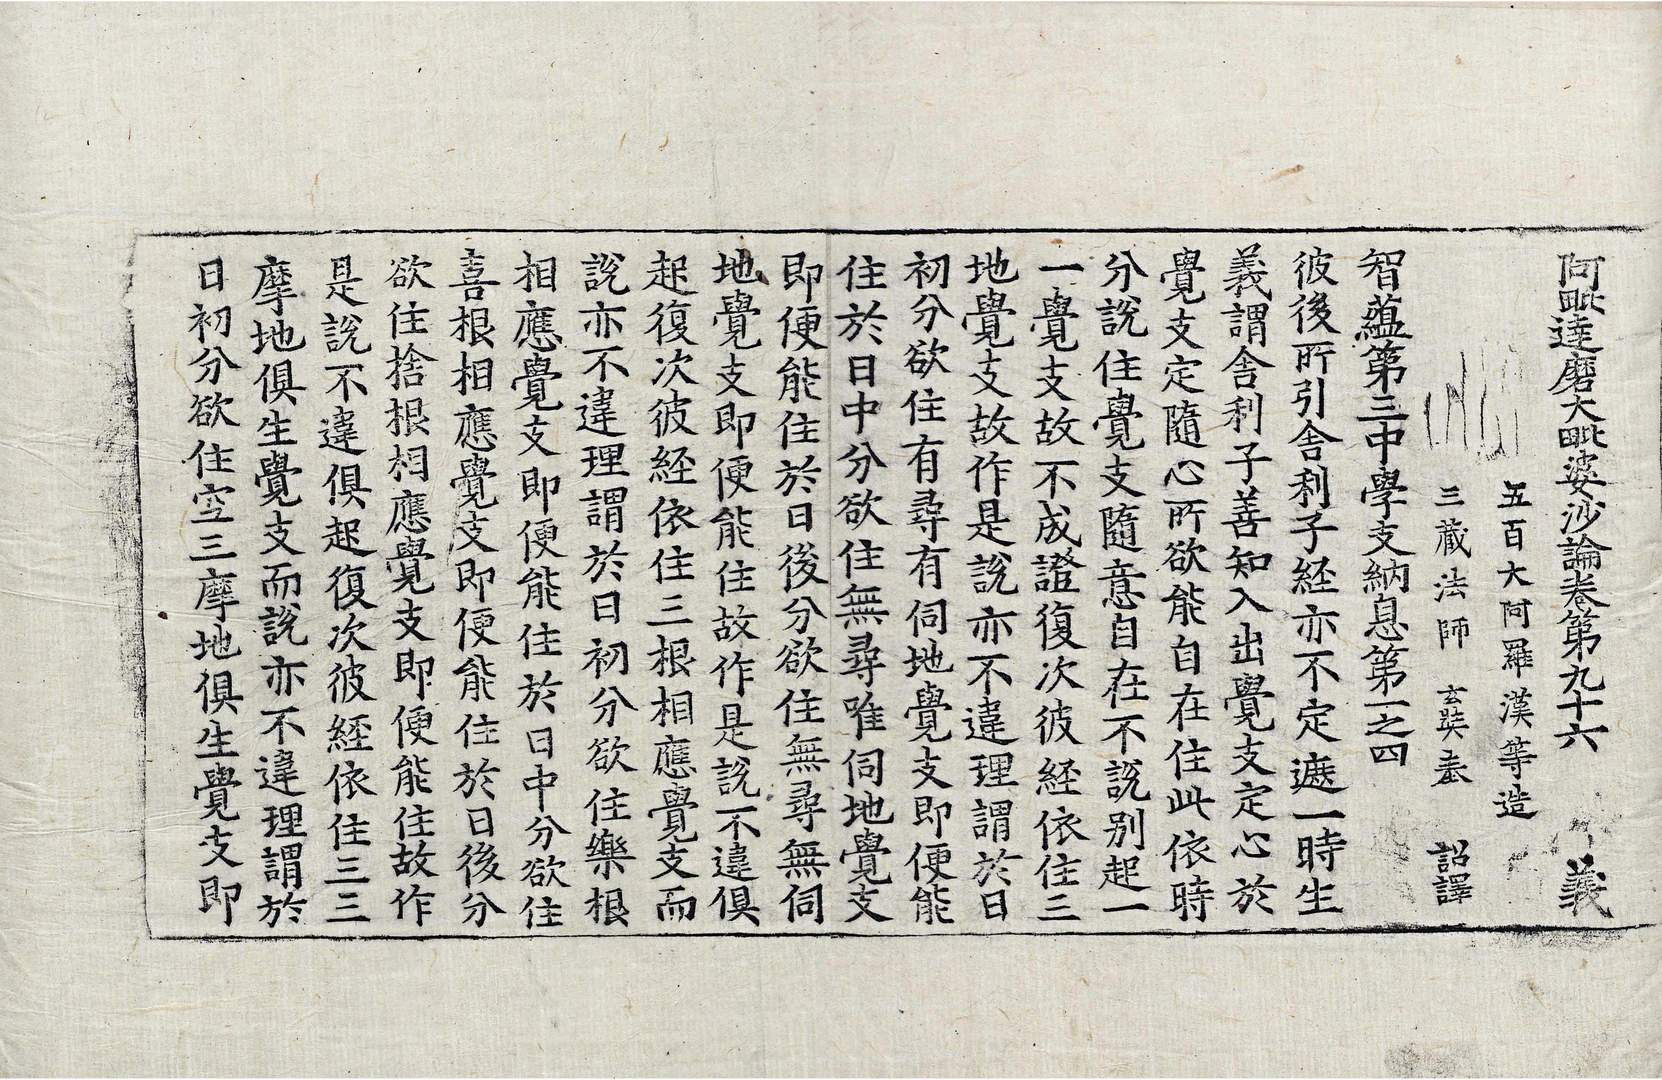 阿毗達磨大毗婆沙論卷第九十六 義
五百大阿羅漢等造
三藏法師 玄奘奉 詔譯
智蘊第三中學支納息第一之四
彼後所引舍利子經亦不定遮一時生
義謂舍利子善知入出覺支定心於
覺支定隨心所欲能自在住此依時
分說住覺支隨意自在不說別起一
一覺支故不成證復次彼經依住三
地覺支故作是說亦不違理謂於日
初分欲住有尋有伺地覺支即便能
住於日中分欲住無尋唯伺地覺支
即便能住於日後分欲住無尋無伺
地覺支即便能住故作是說不違俱
起復次彼經依住三根相應覺支而
說亦不違理謂於日初分欲住樂根
相應覺支即便能住於日中分欲住
喜根相應覺支即便能住於日後分
欲住捨根相應覺支即便能住故作
是說不違俱起復次彼經依住三三
摩地俱生覺支而說亦不違理謂於
日初分欲住空三摩地俱生覺支即